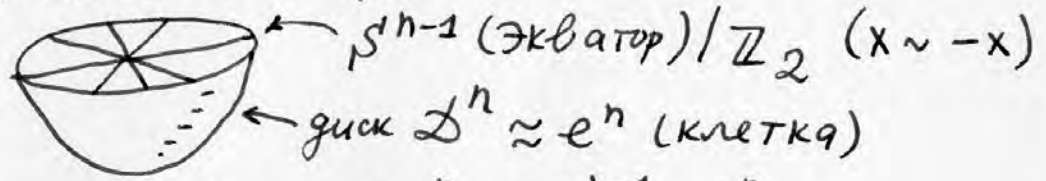 S^{n-1} (экватор)/ℤ_2 (x ~ -x)
диск D^n ≈ e^n (клетка)